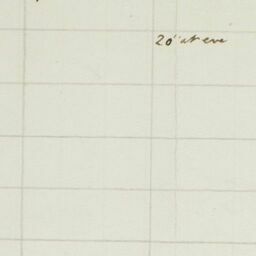 20" at eve